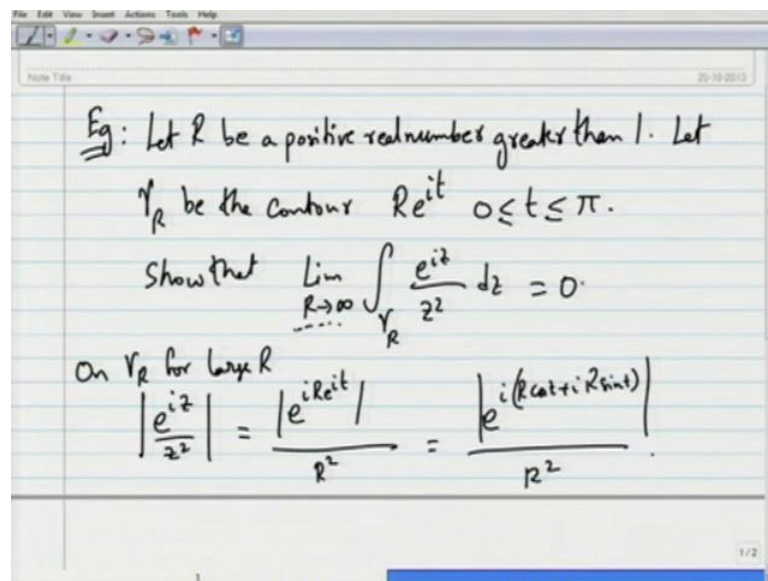 File Edit View Insert Actions Tools Help
Note Title
25-10-2013
Eg: Let R be a positive real number greater than 1. Let
γ_R be the contour Re^{it} 0≤t≤π.
Show that Lim_{R→∞} ∫_{γ_R} e^{iz}/z² dz = 0.
On γ_R for large R
|e^{iz}/z²| = |e^{iRe^{it}}|/R² = |e^{i(Rcost+iRsint)}|/R².
1/2